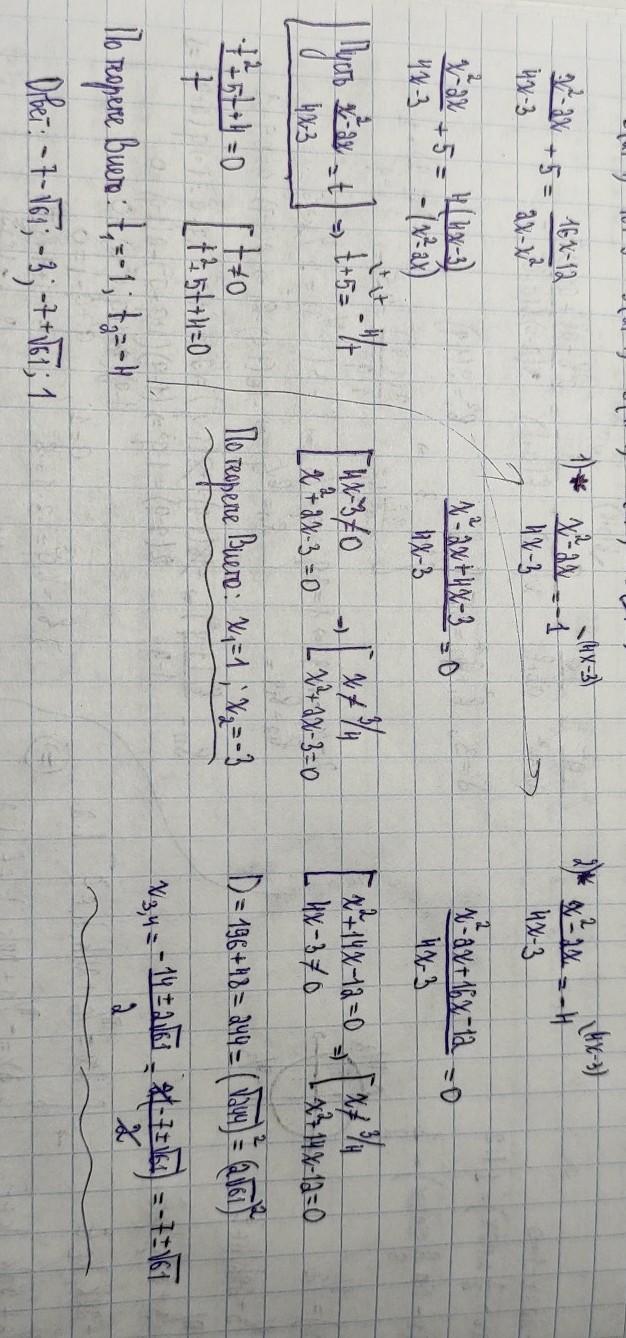 x²-2x/4x-3 + 5 = 16x-12/2x-x²
x²-2x/4x-3 + 5 = 4(4x-3)/-(x²-2x)
[Пусть x²-2x/4x-3 = t] ⇒ t+5 = -4/t
t²+5t+4/t = 0 [t≠0
t²+5t+4=0
По теореме Виета: t₁=-1; t₂=-4
Ответ: -7-√61; -3; -7+√61; 1
1)* x²-2x/4x-3 = -1 \(4x-3)
x²-2x+4x-3/4x-3 = 0
[4x-3≠0 ⇒ [x≠3/4
x²+2x-3=0 x²+2x-3=0
По теореме Виета: x₁=1; x₂=-3
2)* x²-2x/4x-3 = -4 \(4x-3)
x²-2x+16x-12/4x-3 = 0
[x²+14x-12=0 ⇒ [x≠3/4
4x-3≠0 x²+14x-12=0
D=196+48=244=(√244)²=(2√61)²
x₃,₄ = -14±2√61/2 = 2(-7±√61)/2 = -7±√61